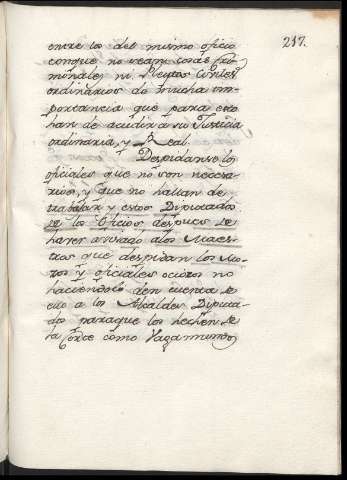 217.
entre los del mismo oficio
conque no sean cosas cri
minales, ni Pleytos Civiles
ordinarios de mucha im-
portancia que para esto
han de acudir a su Justicia
ordinaria, y Real.
Despidanse los
oficiales que no son necesa-
rios, y que no hallan de
trabajar y estos Diputados
de los Oficios despues de
haver avisado a los Maes-
tros que despidan los Mo-
zos y oficiales ociosos no
haciendolo den cuenta de
ello a los Alcaldes Diputa-
dos para que los hechen de
la Corte como Vagamundos